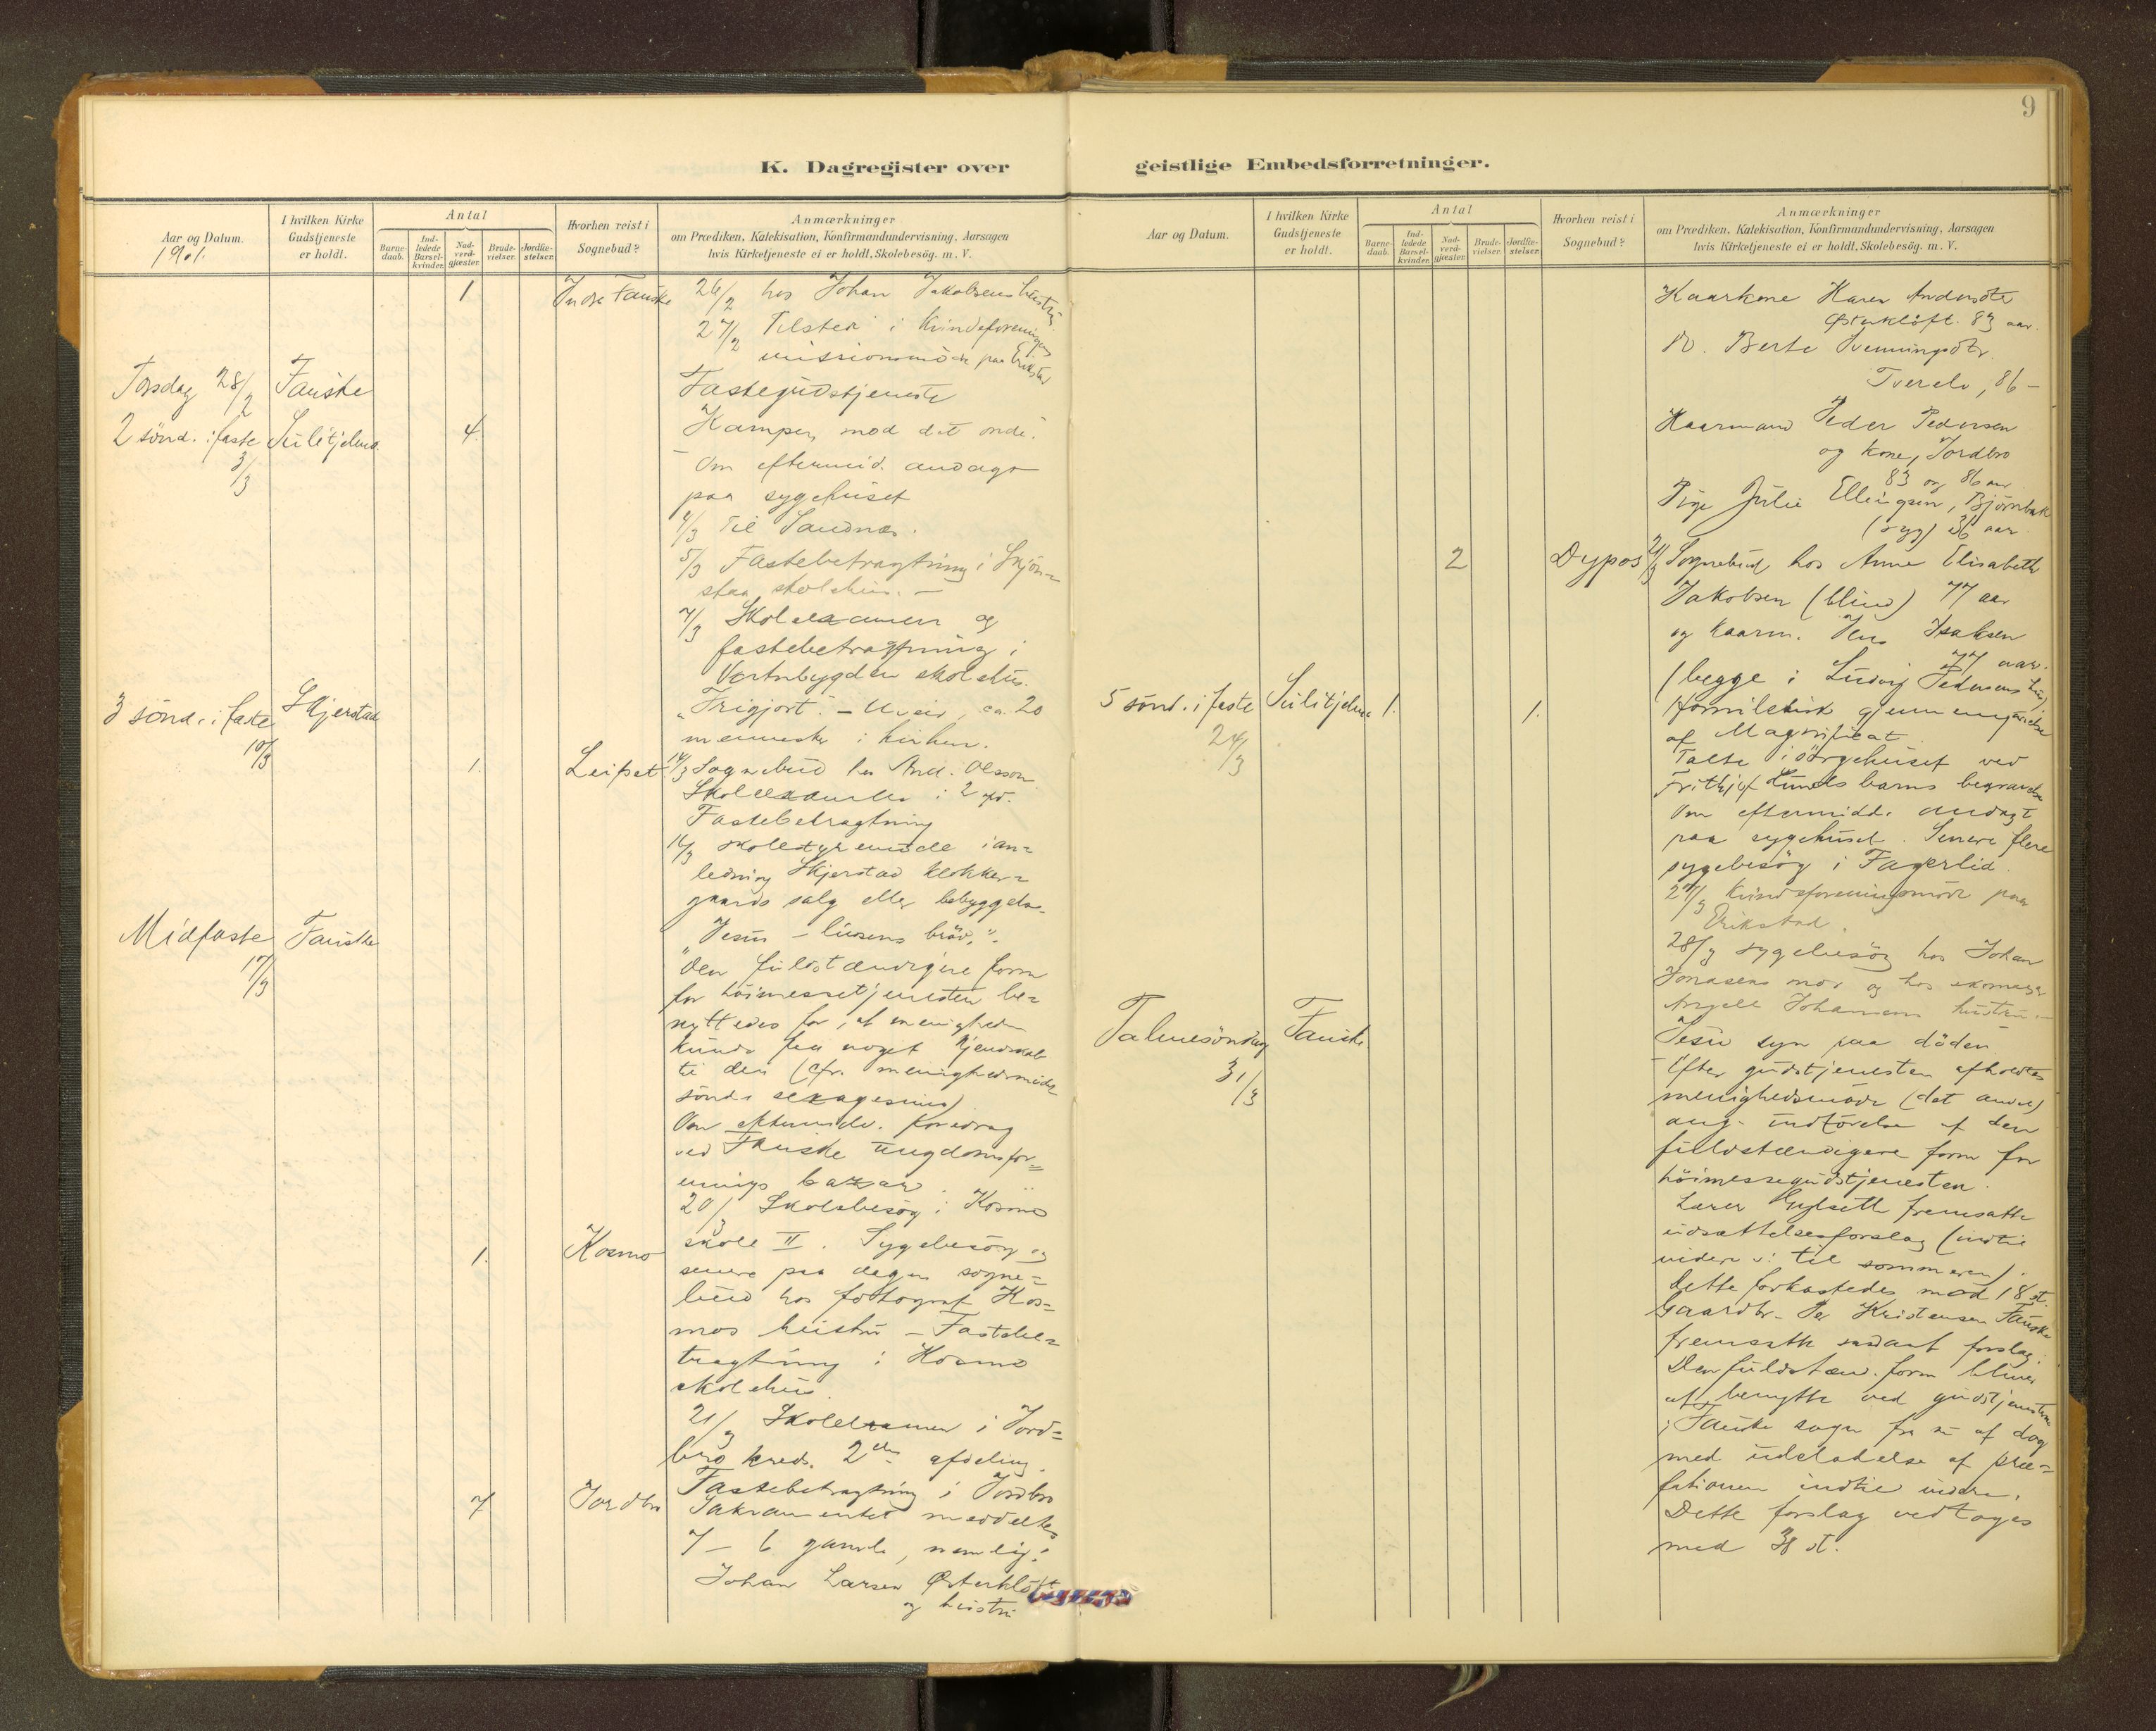 9
K. Dagregister over
geistlige Embedsforretninger.
Aar og Datum.
1901.
I hvilken Kirke
Gudstjeneste
er holdt.
Antal
Barne-
daab.
Ind-
ledede
Barsel-
kvinder.
Nad-
verd-
gjæster.
Brude-
vielser.
Jordfæ-
stelser.
Hvorhen reist i
Sognebud?
Anmærkninger
om Prædiken, Katekisation, Konfirmandundervisning, Aarsagen
hvis Kirketjeneste ei er holdt, Skolebesög. m. V.
1 Indre Fauske 26/2 hos Johan Jakobsens hustru
27/2 Tilsted i Kvindeforeningens
missionsmöde paa Erikstad
Torsdag 28/2 Fauske Fastegudstjeneste
2 sönd. i faste Sulitjelma 4. Kampen mod det onde.
3/3 Om eftermid. andagt
paa sygehuset
4/3 Til Sandnes.
5/3 Fastebetragtning i Skjön-
staa skolehus. —
7/3 Skolexamen og
fastebetragtning i
Vatnbygden skolehus.
3 sönd. i faste Skjerstad „Frigjort". — Uveir, ca. 20
10/3 mennesker i kirken.
1. Leifset 14/3 Sognebud hos And. Olsson
Skolexamen i 2 afd.
Fastebetragtning
16/3 skolestyremöde i an-
ledning Skjerstad klokker-
gaards salg eller bebyggelse.
Midfaste Fauske „Jesus — livsens bröd".
17/3 Den fuldstændigere form
for höimessetjenesten be-
nyttedes for, at menigheden
kunde faa noget kjendskab
til den (cfr. menighedsmöde
sönd. sexagesima)
Om eftermidd. foredrag
ved Fauske ungdomsfor-
enings bazar
20/3 Skolebesög i Kosmo
1. Kosmo skole II. Sygebesög og
senere paa dagen sogne-
bud hos fotograf Kos-
mos hustru — Fastebe-
tragtning i Kosmo
skolehus.
21/3 Skolexamen i Jord-
bro kreds. 2den afdeling.
Fastebetragtning i Jordbro
7 Jordbro Sakramentet meddeltes
7 — 6 gamle, nemlig:
Johan Larsen Österklöft
og hustru
Aar og Datum.
I hvilken Kirke
Gudstjeneste
er holdt.
Antal
Barne-
daab.
Ind-
ledede
Barsel-
kvinder.
Nad-
verd-
gjæster.
Brude-
vielser.
Jordfæ-
stelser.
Hvorhen reist i
Sognebud?
Anmærkninger
om Prædiken, Katekisation, Konfirmandundervisning, Aarsagen
hvis Kirketjeneste ei er holdt, Skolebesög. m. V.
Kaarkone Karen Andersdtr
Österklöft. 83 aar.
Do. Berte Svenningsdtr.
Tverelv, 86 —
Kaarmand Peder Pedersen
og kone, Jordbro
83 og 86 aar
Pige Julie Ellingsen, Björnbak
(syg) 36 aar.
2 Dypos 21/3 Sognebud hos Anne Elisabeth
Jakobsen (blind) 77 aar
og kaarm. Jens Isaksen
77 aar.
(begge i Ludvig Pedersens hus)
5 sönd. i faste Sulitjelma 1. 1. Homiletisk gjennemgaaelse
24/3 af Magnificat.
Talte i sörgehuset ved
Frithjof Lunds barns begravelse
Om eftermidd. andagt
paa sygehuset. Senere flere
sygebesög i Fagerlid.
27/3 Kvindeforeningsmöde paa
Erikstad.
28/3 sygebesög hos Johan
Jonasens mor og hos skomager
Angell Johansens hustru. —
Palmesöndag Fauske Jesu syn paa döden
31/3 — Efter gudstjenesten afholdtes
menighedsmöde (det andet)
ang. indförelse af den
fuldstændigere form for
höimessegudstjenesten.
Lærer Gylseth fremsatte
udsættelsesforslag (indtil
videre o: til sommeren).
Dette forkastedes mod 18 st.
Gaardbr. Per Kristensen Fauske
fremsatte saadant forslag:
Den fuldstæn. form bliver
at benytte ved gudstjenesterne
i Fauske sogn fra nu af dog
med udeladelse af præ-
fationen indtil videre.
Dette forslag vedtoges
med 38 st.